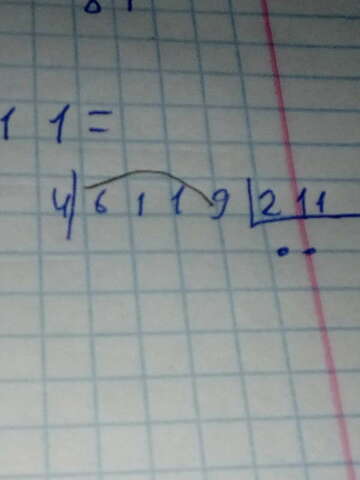 1 1 =
4) 6 1 1 9 | 2 1 1